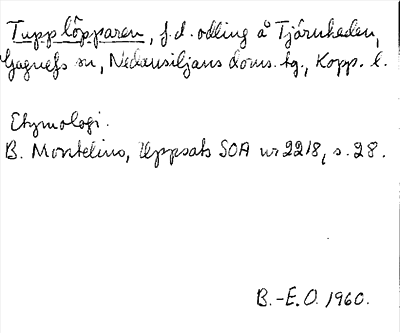 Tupplöpparen, f.d. odling å Tjärnheden,
Gagnefs sn, Nedansiljans doms. tg., Kopp. l.
Etymologi.
B. Montelius, Uppsats SOA nr 2218, s. 28.
B.-E.O. 1960.